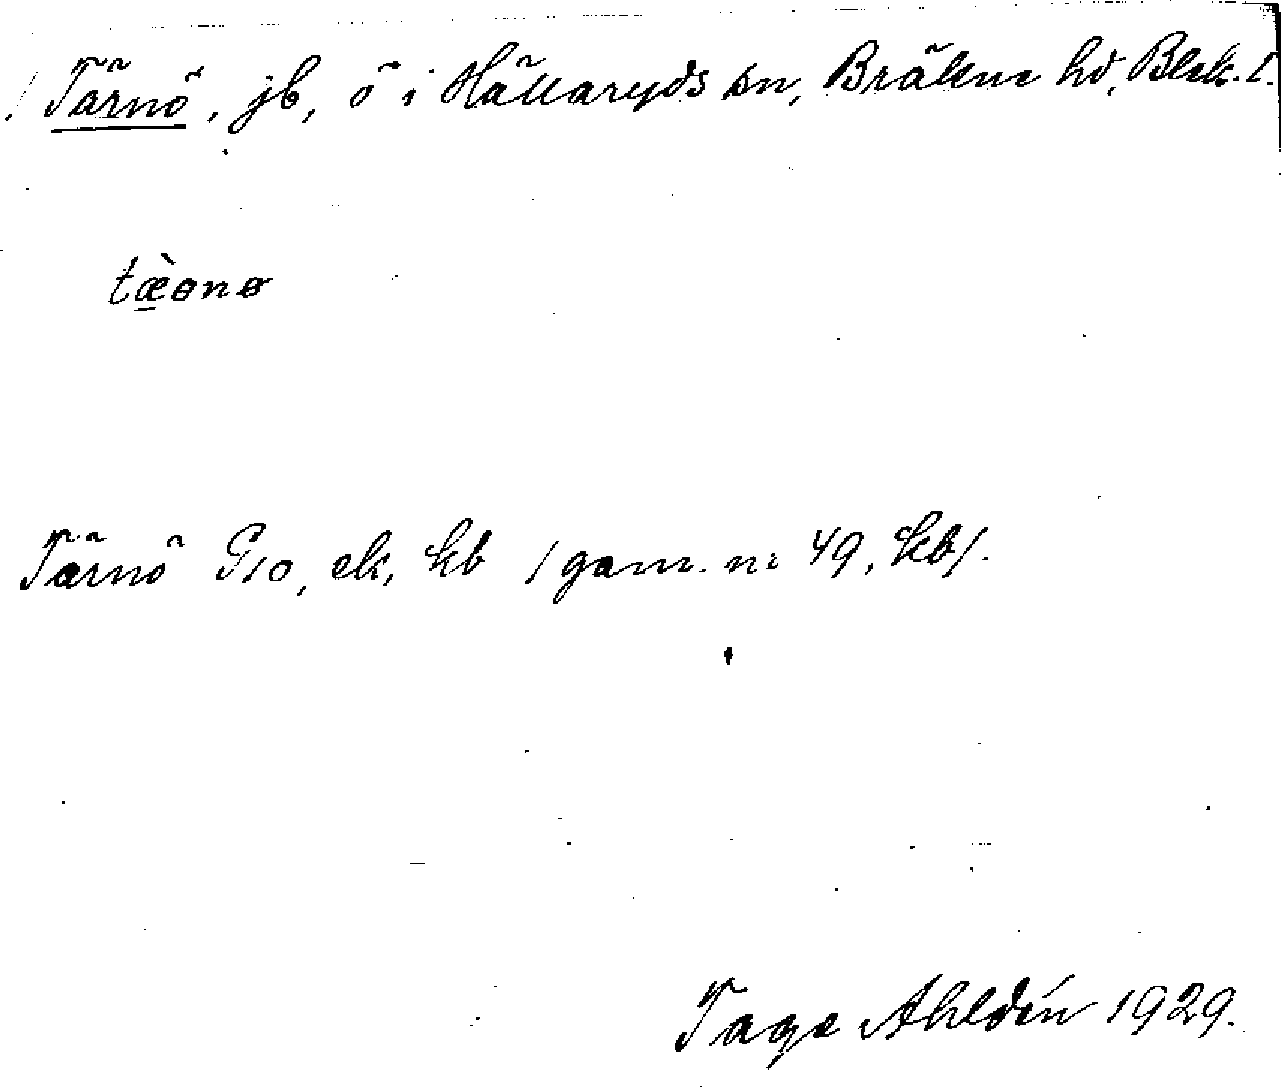 Tärnö, jb, ö i Hällaryds sn, Bräkne hd, Blek. l.
tæ̀ɵnø
Tärnö G10, ek, kb /gam. nr 49, kb/.
Tage Ahldén 1929.